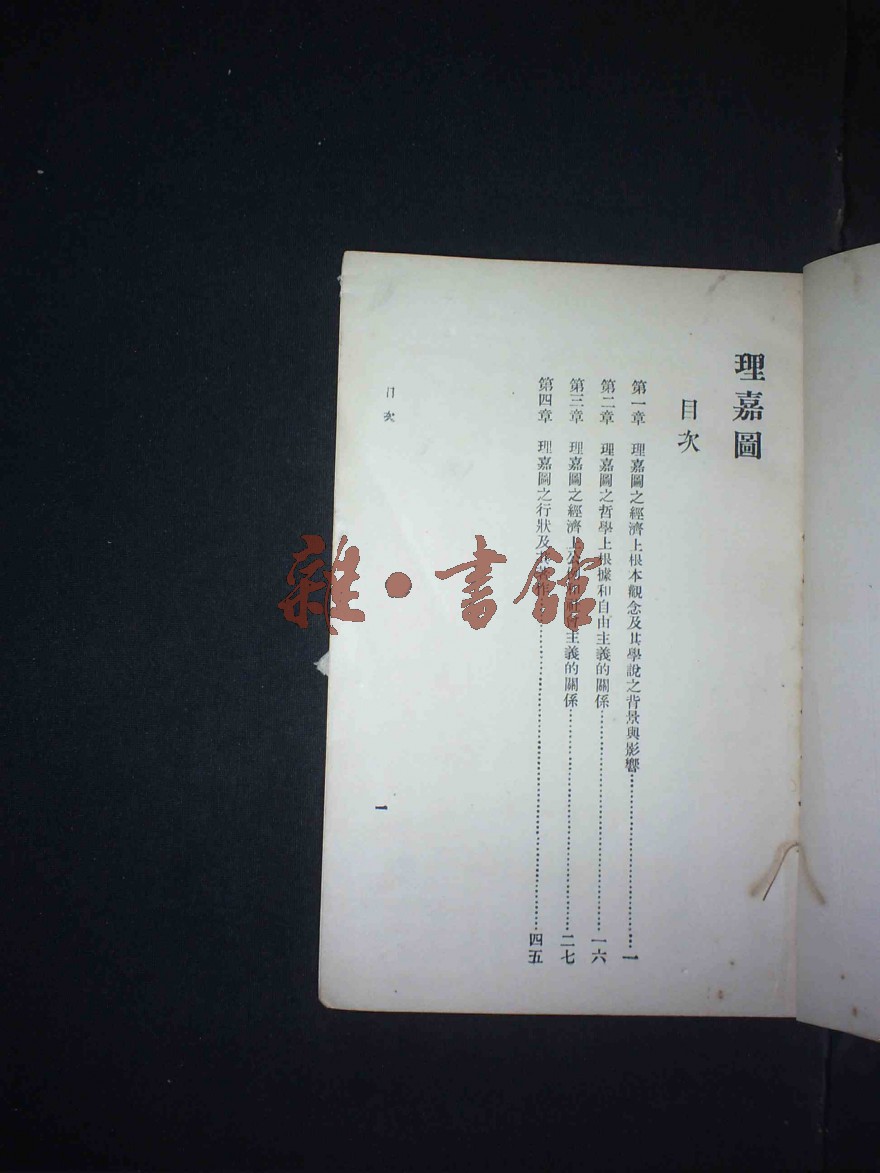 理嘉圖
目次
第一章 理嘉圖之經濟上根本觀念及其學說之背景與影響……一
第二章 理嘉圖之哲學上根據和自由主義的關係……一六
第三章 理嘉圖之經濟上 主義的關係……二七
第四章 理嘉圖之行狀及……四五
目次
一
雜·書館